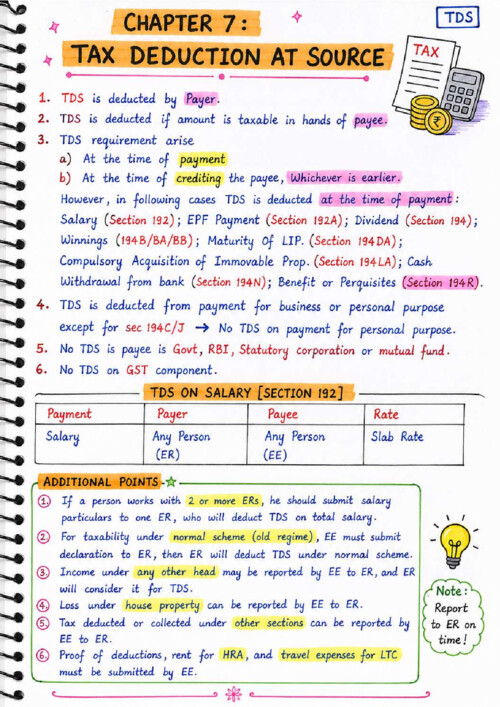 CHAPTER 7:
TDS
TAX DEDUCTION AT SOURCE
TAX
₹
1. TDS is deducted by Payer.
2. TDS is deducted if amount is taxable in hands of payee.
3. TDS requirement arise
a) At the time of payment
b) At the time of crediting the payee, Whichever is earlier.
However, in following cases TDS is deducted at the time of payment:
Salary (Section 192); EPF Payment (Section 192A); Dividend (Section 194);
Winnings (194B/BA/BB); Maturity Of LIP. (Section 194DA);
Compulsory Acquisition of Immovable Prop. (Section 194LA); Cash
Withdrawal from bank (Section 194N); Benefit or Perquisites (Section 194R).
4. TDS is deducted from payment for business or personal purpose
except for sec 194C/J → No TDS on payment for personal purpose.
5. No TDS is payee is Govt, RBI, Statutory corporation or mutual fund.
6. No TDS on GST component.
TDS ON SALARY [SECTION 192]
Payment Payer Payee Rate
Salary Any Person Any Person Slab Rate
(ER) (EE)
ADDITIONAL POINTS
1. If a person works with 2 or more ERs, he should submit salary
particulars to one ER, who will deduct TDS on total salary.
2. For taxability under normal scheme (old regime), EE must submit
declaration to ER, then ER will deduct TDS under normal scheme.
3. Income under any other head may be reported by EE to ER, and ER
will consider it for TDS.
4. Loss under house property can be reported by EE to ER.
5. Tax deducted or collected under other sections can be reported by
EE to ER.
6. Proof of deductions, rent for HRA, and travel expenses for LTC
must be submitted by EE.
Note:
Report
to ER on
time!